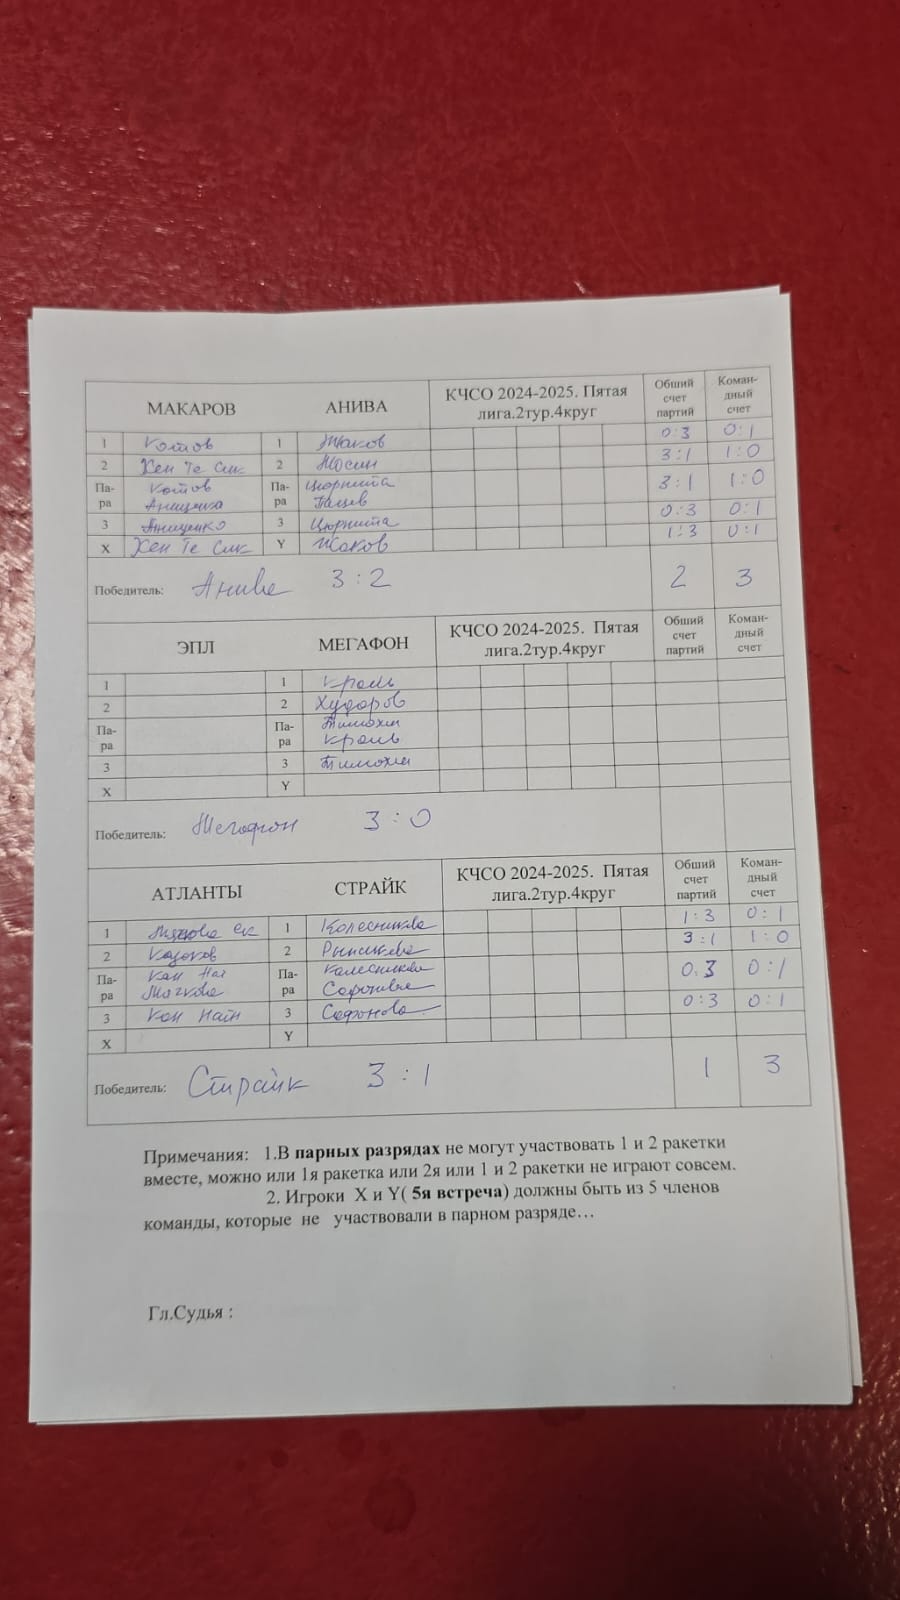 МАКАРОВ АНИВА КЧСО 2024-2025. Пятая лига.2тур.4круг Обший счет партий Коман-дный счет
1 Котов 1 Жаков 0:3 0:1
2 Хен Те Сик 2 Мосин 3:1 1:0
Па-ра Котов Анищенко Па-ра Цюрпита 3:1 1:0
3 Анищенко 3 Цюрпита 0:3 0:1
X Хен Те Сик Y Жаков 1:3 0:1
Победитель: Анива 3:2 2 3
ЭПЛ МЕГАФОН КЧСО 2024-2025. Пятая лига.2тур.4круг Обший счет партий Коман-дный счет
1 1 Кроль
2 2 Худоров
Па-ра Па-ра Тимохин Кроль
3 3 Тимохин
X Y
Победитель: Мегафон 3:0
АТЛАНТЫ СТРАЙК КЧСО 2024-2025. Пятая лига.2тур.4круг Обший счет партий Коман-дный счет
1 1 Колесникова 1:3 0:1
2 2 3:1 1:0
Па-ра Па-ра Колесникова 0:3 0:1
3 3 Сафонова 0:3 0:1
X Y
Победитель: Страйк 3:1 1 3
Примечания: 1.В парных разрядах не могут участвовать 1 и 2 ракетки
вместе, можно или 1я ракетка или 2я или 1 и 2 ракетки не играют совсем.
2. Игроки X и Y( 5я встреча) должны быть из 5 членов
команды, которые не участвовали в парном разряде…
Гл.Судья :